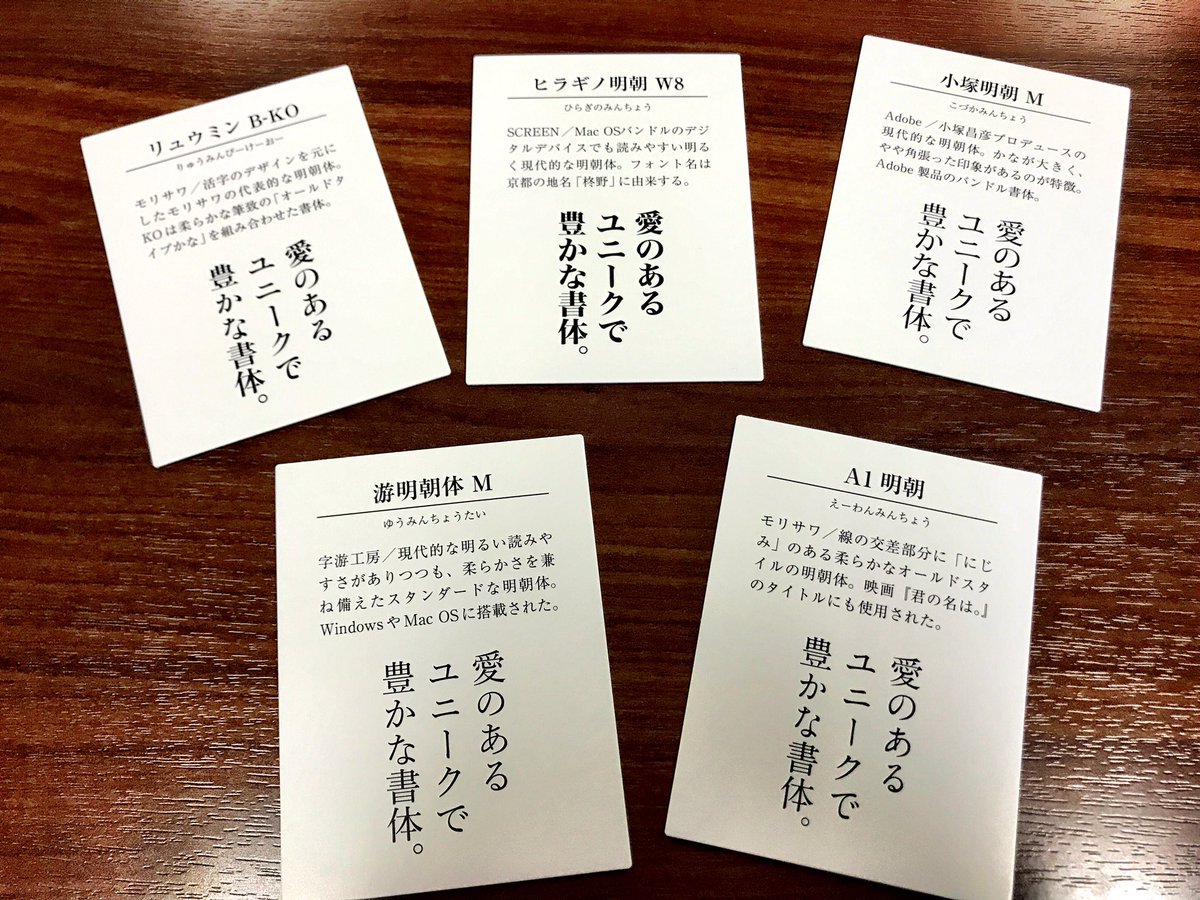 リュウミン B-KO
りゅうみんびーけーおー
モリサワ／活字のデザインを元に
したモリサワの代表的な明朝体。
KOは柔らかな筆致の「オールドタ
イプかな」を組み合わせた書体。
愛のある
ユニークで
豊かな書体。
ヒラギノ明朝 W8
ひらぎのみんちょう
SCREEN／Mac OSバンドルのデジ
タルデバイスでも読みやすい明る
く現代的な明朝体。フォント名は
京都の地名「柊野」に由来する。
愛のある
ユニークで
豊かな書体。
小塚明朝 M
こづかみんちょう
Adobe／小塚昌彦プロデュースの
現代的な明朝体。かなが大きく、
やや角張った印象があるのが特徴。
Adobe 製品のバンドル書体。
愛のある
ユニークで
豊かな書体。
游明朝体 M
ゆうみんちょうたい
字游工房／現代的な明るい読みや
すさがありつつも、柔らかさを兼
ね備えたスタンダードな明朝体。
WindowsやMac OSに搭載された。
愛のある
ユニークで
豊かな書体。
A1 明朝
えーわんみんちょう
モリサワ／線の交差部分に「にじ
み」のある柔らかなオールドスタ
イルの明朝体。映画『君の名は。』
のタイトルにも使用された。
愛のある
ユニークで
豊かな書体。